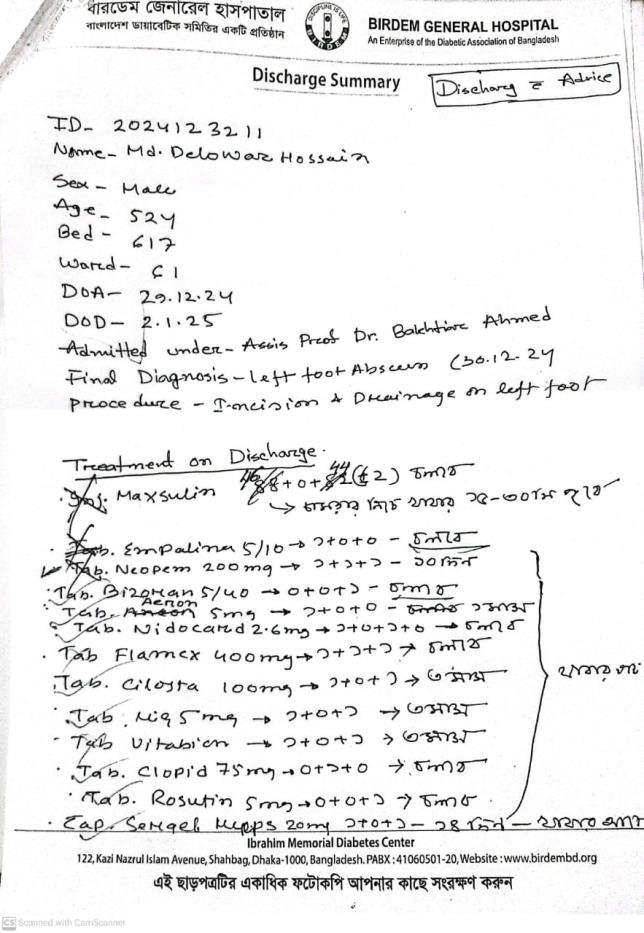 বারডেম জেনারেল হাসপাতাল
বাংলাদেশ ডায়াবেটিক সমিতির একটি প্রতিষ্ঠান
BIRDEM
BIRDEM GENERAL HOSPITAL
An Enterprise of the Diabetic Association of Bangladesh
Discharge Summary
Discharg Advice
ID- 2024123211
Name- Md. Delowar Hossain
Sex - Male
Age - 52Y
Bed - 617
Ward- 61
DOA- 29.12.24
DOD- 2.1.25
Admitted under- Assis Prof Dr. Bakhtiar Ahmed
Final Diagnosis- left foot Abscess (30.12.24
Procedure - Incision & Drainage on left foot
Treatment on Discharge.
Inj. Maxsulin (±2) চলবে
Tab. Empalina 5/10 → ১+০+০ - চলবে
Tab. Neopem 200mg → ১+১+১ - ১০দিন
Tab. Bizoran 5/40 → ০+০+১ - চলবে
Tab. Aeron 5mg → ১+০+০ - ১মাস
Tab. Nidocard 2.6mg → ১+০+১+০ → চলবে
Tab Flamex 400mg → ১+১+১ → চলবে
Tab. Cilosta 100mg → ১+০+১ → ৩মাস
Tab. 5mg → ১+০+১ → ৩মাস
Tab Vitabion → ১+০+১ → ৩মাস
Tab. Clopid 75mg → ০+১+০ → চলবে
Tab. Rosutin 5mg → ০+০+১ → চলবে
খাবার পর
Cap. Sergel Mupps 20mg ১+০+১ - ১৪ দিন - খাবার আগে
Ibrahim Memorial Diabetes Center
122, Kazi Nazrul Islam Avenue, Shahbag, Dhaka-1000, Bangladesh. PABX : 41060501-20, Website : www.birdembd.org
এই ছাড়পত্রটির একাধিক ফটোকপি আপনার কাছে সংরক্ষণ করুন
CS Scanned with CamScanner